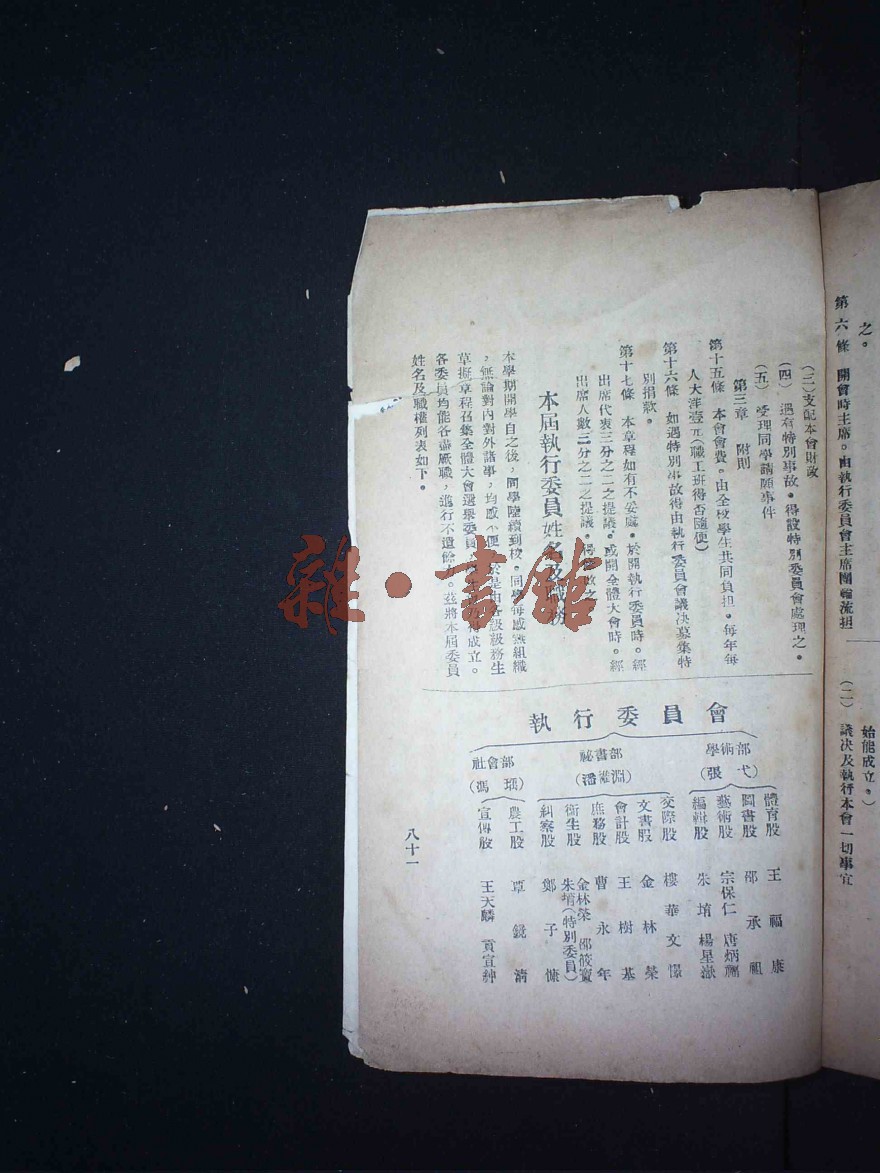 之。
第六條 開會時主席。由執行委員會主席團輪流担
始能成立。)
(二)議决及執行本會一切事宜
(三)支配本會財政
(四)遇有特別事故。得設特別委員會處理之。
(五)受理同學請願事件
第三章 附則
第十五條 本會會費。由全校學生共同負担。每年每
人大洋壹元(職工班得否隨便)
第十六條 如遇特別事故得由執行委員會議决募集特
別捐款。
第十七條 本章程如有不妥處。於開執行委員時。經
出席代表三分之二之提議。或開全體大會時。經
出席人數三分之二之提議。
本屆執行委員姓名及職務
本學期開學自之後,同學陸續到校。同學每感無組織
,無論對內對外諸事,均感不便,於是由各級級務生
草擬章程召集全體大會選舉委員 成立。
各委員均能各盡厥職,進行不遺餘力。茲將本屆委員
姓名及職權列表如下。
執行委員會
學術部
(張弋)
體育股 王福康
圖書股 邵承祖
藝術股 宗保仁 唐炳
編輯股 朱堉 楊星
祕書部
(潘 淵)
交際股 樓華文
文書股 金林榮
會計股 王樹基
庶務股 曹永年
衞生股 金林榮 邵筱
朱堉(特別委員)
糾察股 鄭子慷
社會部
(馮 )
農工股 覃鏡清
宣傳股 王天麟 貢宣紳
八十一
雜·書館